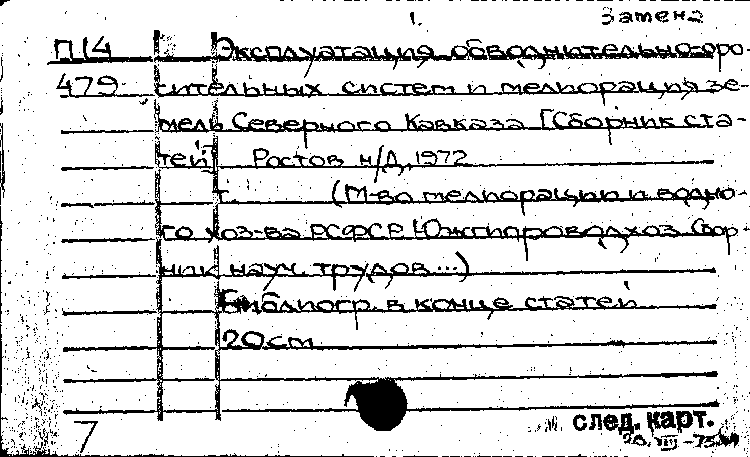 1. Замена
П14 Эксплуатация обводнительно-оро-
479 сительных систем и мелиорация зе-
мель Северного Кавказа [Сборник ста-
тей] Ростов н/Д, 1972
т. (М-во мелиорации и водно-
го хоз-ва РСФСР. Южгипроводхоз. Сбор-
ник науч. трудов...)
Библиогр. в конце статей
20 см
след. карт.
7